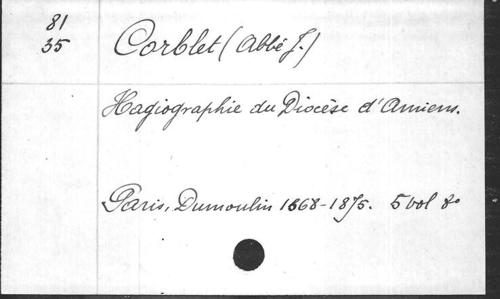 81
35
Corblet (Abbé J.)
Hagiographie du Diocèse d'Amiens.
Paris, Dumoulin 1868-1875. 5 vol 8º